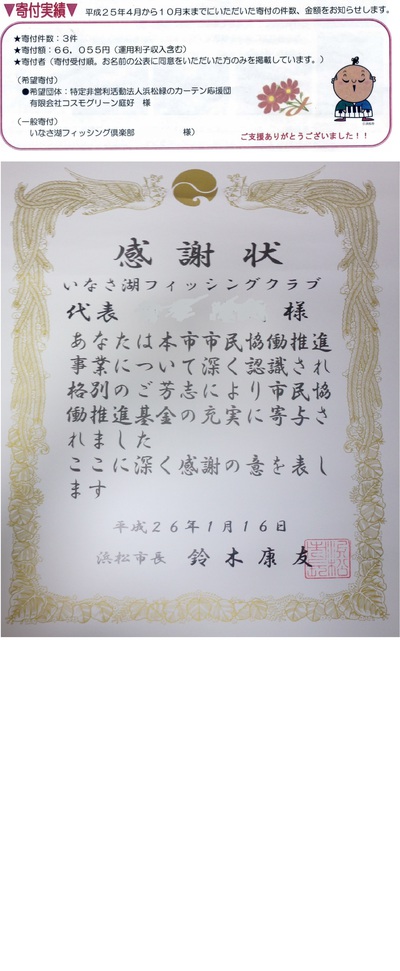 ▼寄付実績▼ 平成25年4月から10月末までにいただいた寄付の件数、金額をお知らせします。
★寄付件数：3件
★寄付額：66,055円（運用利子収入含む）
★寄付者（寄付受付順。お名前の公表に同意をいただいた方のみを掲載しています。）
（希望寄付）
●希望団体：特定非営利活動法人浜松緑のカーテン応援団
有限会社コスモグリーン庭好　様
（一般寄付）
いなさ湖フィッシング倶楽部　　　　様）
ご支援ありがとうございました！！
感謝状
いなさ湖フィッシングクラブ
代表　　　　　　様
あなたは本市市民協働推進
事業について深く認識され
格別のご芳志により市民協
働推進基金の充実に寄与さ
れました
ここに深く感謝の意を表し
ます
平成26年1月16日
浜松市長　鈴木康友